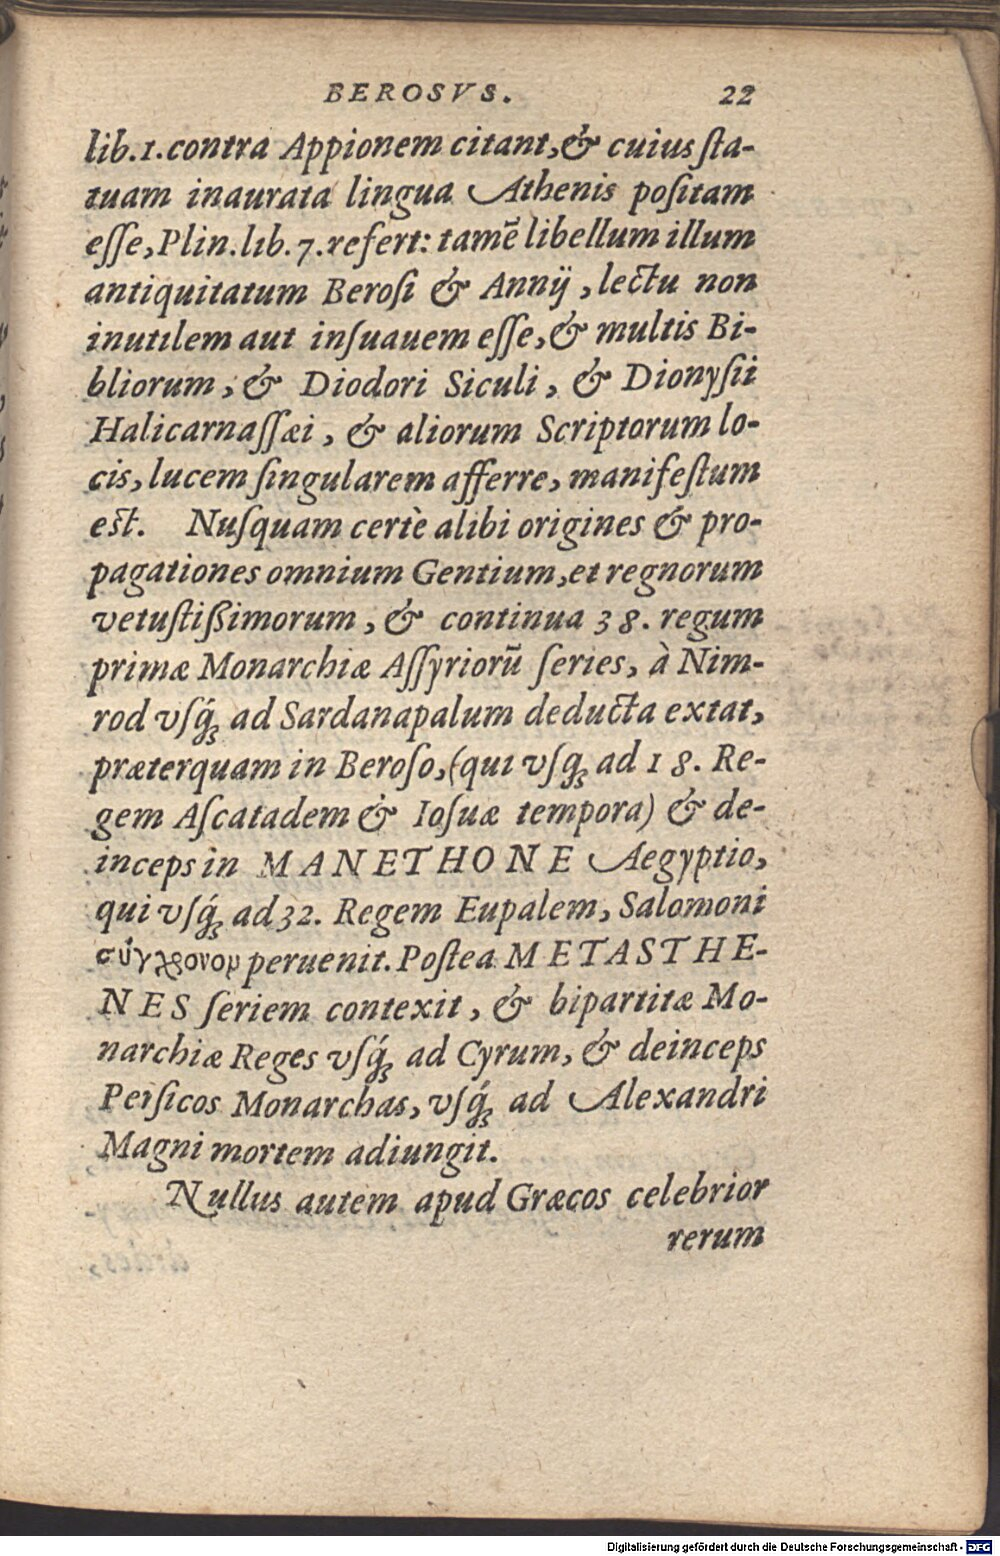 BEROSVS. 22
lib.1.contra Appionem citant,& cuius ſta-
tuam inaurata lingua Athenis poſitam
eſſe, Plin.lib.7.refert: tamē libellum illum
antiquitatum Beroſi & Annij, lectu non
inutilem aut inſuauem eſſe,& multis Bi-
bliorum, & Diodori Siculi, & Dionyſii
Halicarnaſſæi, & aliorum Scriptorum lo-
cis, lucem ſingularem afferre, manifeſtum
est. Nuſquam certè alibi origines & pro-
pagationes omnium Gentium, et regnorum
vetuſtißimorum, & continua 38. regum
primæ Monarchiæ Aſſyriorū ſeries, à Nim-
rod vſq́ꝫ ad Sardanapalum deducta extat,
præterquam in Beroſo, (qui vſq́ꝫ ad 18. Re-
gem Aſcatadem & Ioſuæ tempora) & de-
inceps in MANETHONE Aegyptio,
qui vſq́ꝫ ad 32. Regem Eupalem, Salomoni
σύγχρονομ peruenit. Poſtea METASTHE-
NES ſeriem contexit, & bipartitæ Mo-
narchiæ Reges vſq́ꝫ ad Cyrum, & deinceps
Perſicos Monarchas, vſq́ꝫ ad Alexandri
Magni mortem adiungit.
Nullus autem apud Græcos celebrior
rerum
Digitalisierung gefördert durch die Deutsche Forschungsgemeinschaft - DFG